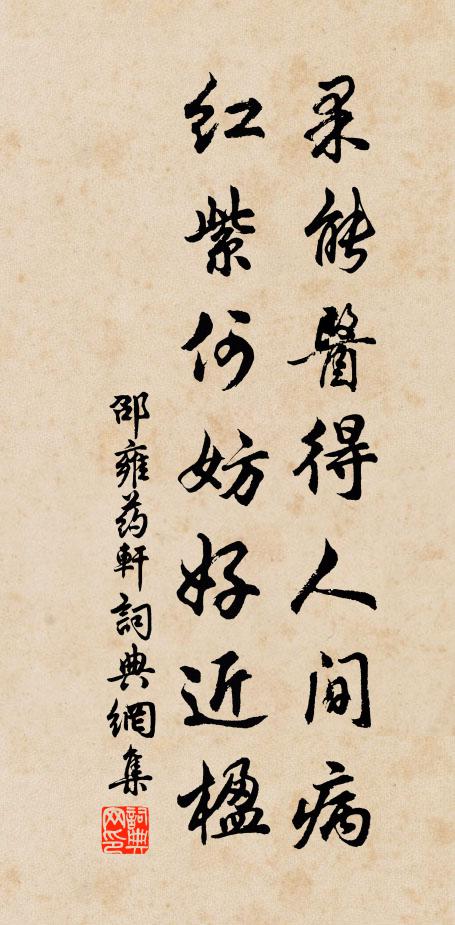 果能醫得人間病
紅紫何妨好近楹
邵雍药軒詞典網集
詞典網印